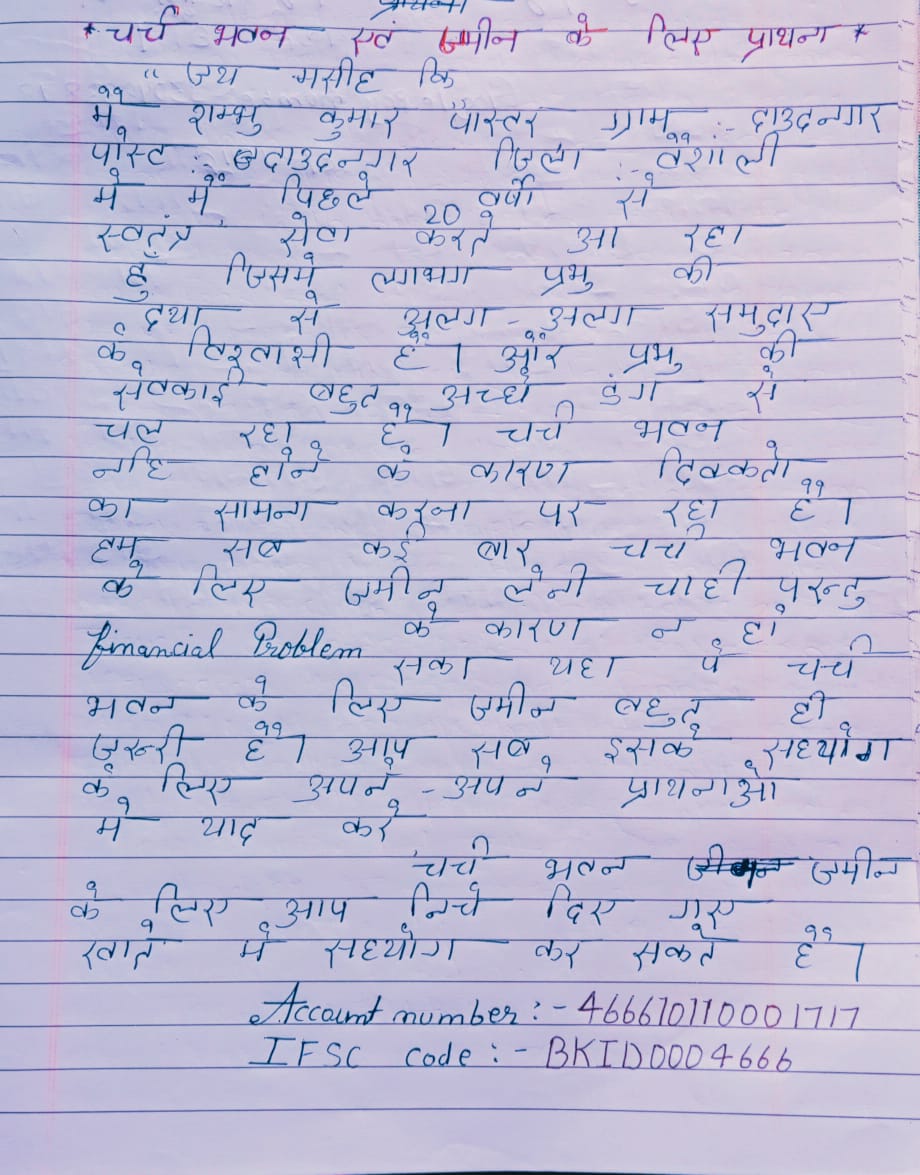 प्रार्थना
* चर्च भवन एवं ज़मीन के लिए प्राथना *
" जय मसीह कि
मैं शम्भु कुमार पास्टर ग्राम :- दाउदनगर
पोस्ट :- दाउदनगर जिला :- वैशाली
में मैं पिछले 20 वर्षों से
स्वतंत्र सेवा करते आ रहा
हुँ जिसमे लगभग प्रभु की
दया से अलग - अलग समुदाए
के विश्वासी है। और प्रभु की
सेवकाई बहुत अच्छे ढंग से
चल रहा है। चर्च भवन
नहि होने के कारण दिक्कतो
का सामना करना पर रहा है।
हम सब कई बार चर्च भवन
के लिए ज़मीन लेनी चाही परन्तु
financial Problem के कारण न हो
सका यहा पे चर्च
भवन के लिए ज़मीन बहुत ही
ज़रूरी है। आप सब इसके सहयोग
के लिए अपने - अपने प्राथनाओ
मे याद करे
चर्च भवन ज़मीन
के लिए आप निचे दिए गए
खाते में सहयोग कर सकते है।
Account number :- 466610110001717
IFSC code :- BKID0004666